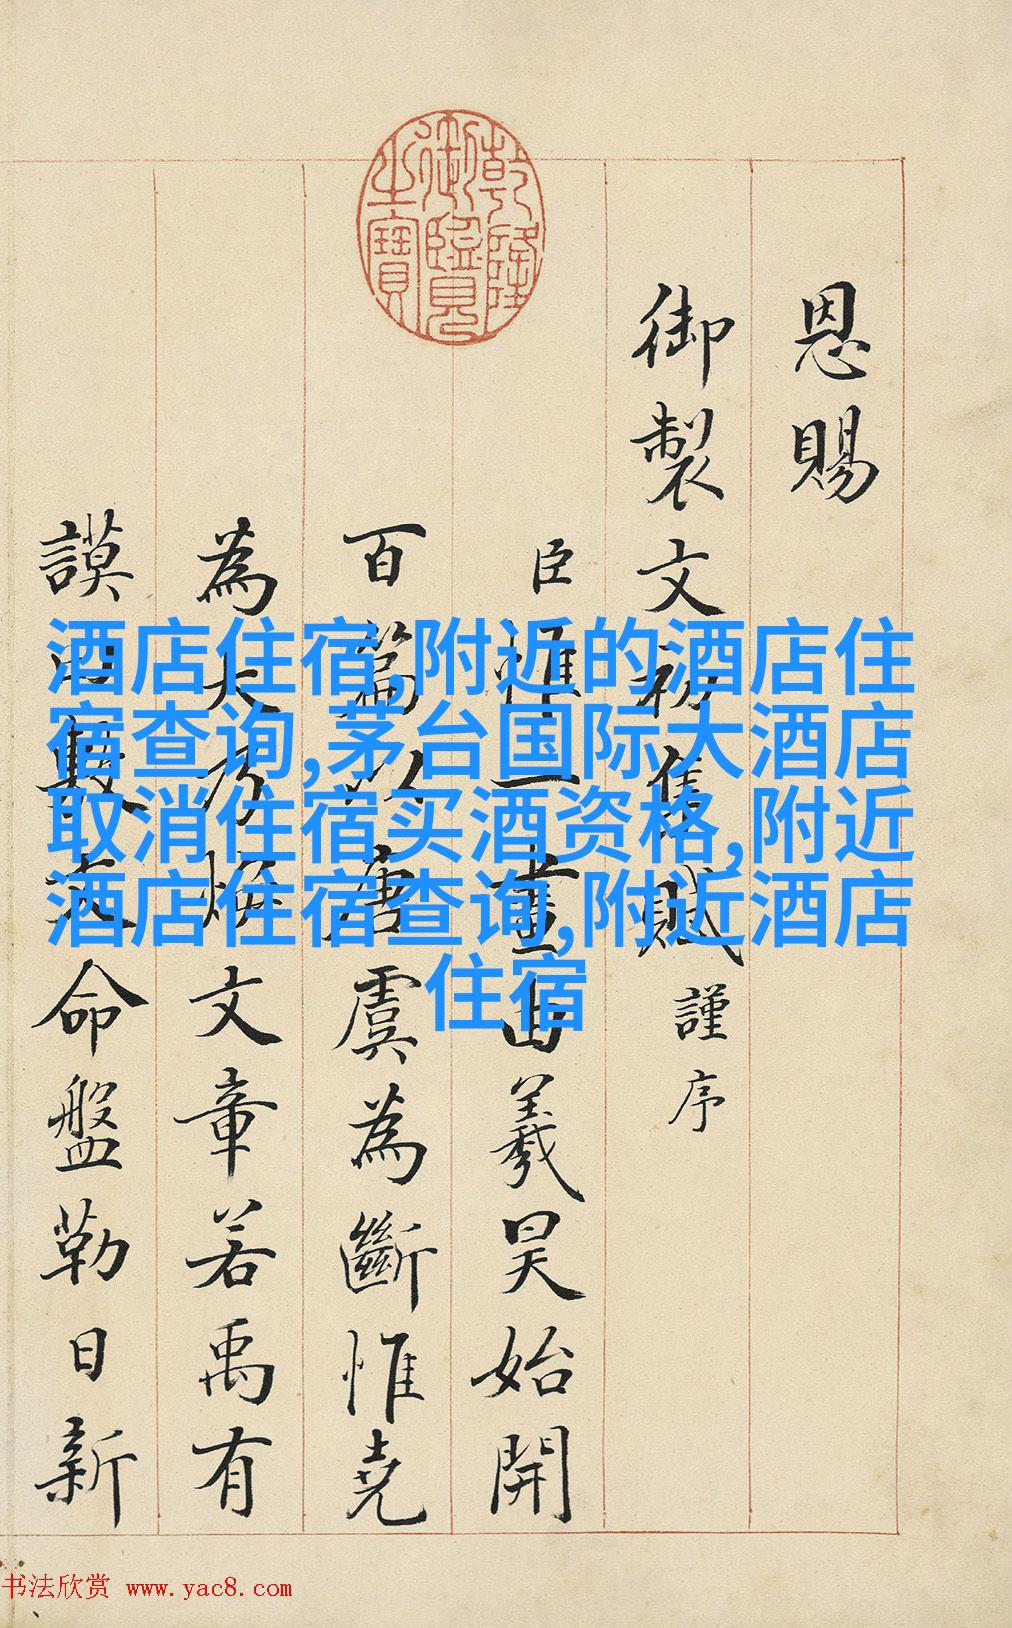 恩賜
御製文初集賦謹序
臣惟一畫由羲昊始開
百篇以唐虞為斷惟堯
為大乃煥文章若禹有
謨命盤勒日新
乾隆
御覽
之寶
酒店住宿,附近的酒店住
宿查询,茅台国际大酒店
取消住宿买酒资格,附近
酒店住宿查询,附近酒店
住宿
书法欣赏 www.yac8.com